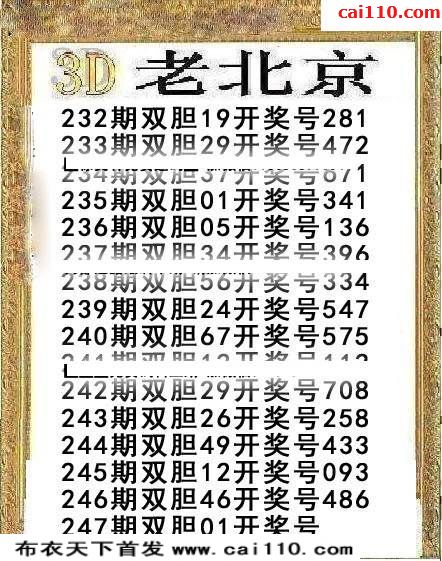 cai110.com
3D 老北京
232期双胆19开奖号281
233期双胆29开奖号472
234期双胆37开奖号671
235期双胆01开奖号341
236期双胆05开奖号136
237期双胆34开奖号396
238期双胆56开奖号334
239期双胆24开奖号547
240期双胆67开奖号575
241期双胆12开奖号112
242期双胆29开奖号708
243期双胆26开奖号258
244期双胆49开奖号433
245期双胆12开奖号093
246期双胆46开奖号486
247期双胆01开奖号
布衣天下首发 www.cai110.com